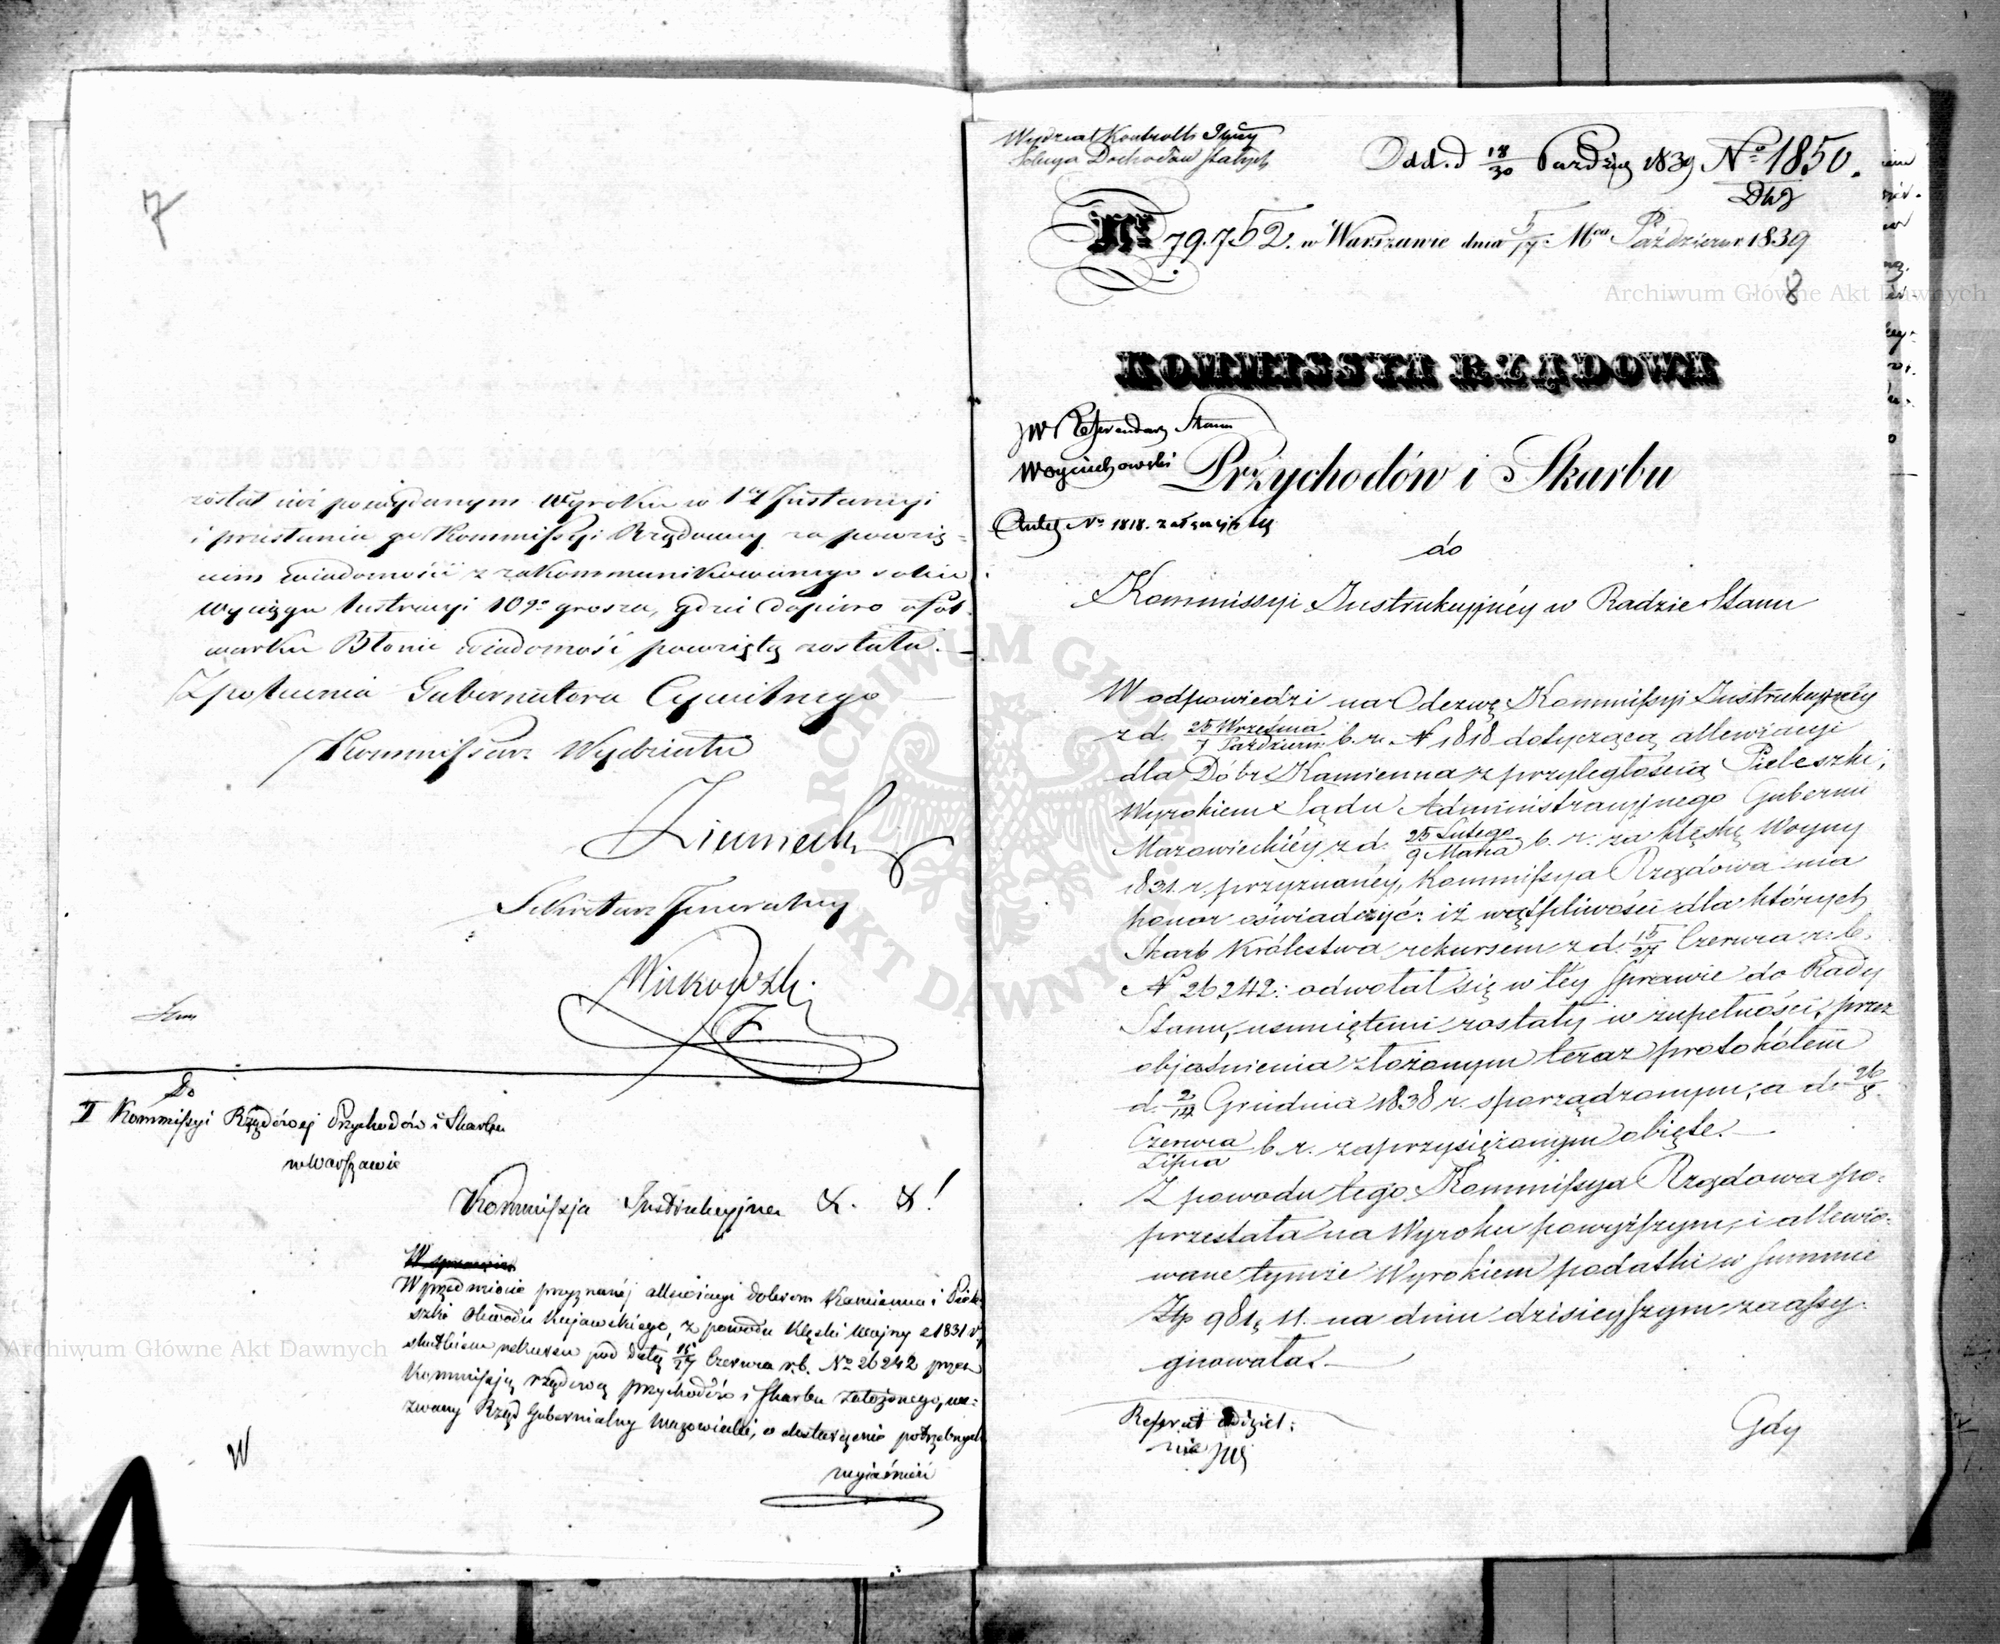 7
został inż powyżdanym Wyroku w 1ey Instancyi
i przesłania go Kommissyi Rządowey za powzię-
ciem wiadomości z zakommunikowanego sobie
Wyciągu lustracyi 10go grosza, gdzie dopiero o fol-
warku Błonie wiadomość powziętą została.
Z polecenia Gubernatora Cywilnego
Kommissarz Wydziału
Sekretarz Jeneralny
Do
II Kommissyi Rządowej Przychodów i Skarbu
w Warszawie
Kommissja Instrukcyjna & &!
W sprawie
W przedmiocie przyznanéj allewiacyi dobrom Kamienna i Piele-
szki Obwodu Kujawskiego, z powodu klęski wojny z 1831 r.
skutkiem rekursu pod datą 15/27 Czerwca r.b. No 26242 przez
Kommissją rządową przychodów i Skarbu założonego, we-
zwany Rząd Gubernialny Mazowiecki, o dostarczenie potrzebnych
wyjaśnień
W
Wydział Kontrolli
Sekcya Dochodów Stałych
Odd. d 18/30 Paździer 1839 No 1850.
No 79.752. w Warszawie dnia 5/17 Mca Październ 1839
8
KOMMISSYA RZĄDOWA
JW Referendarz Stanu
Woyciechowski
Przychodów i Skarbu
No 1818. załączyć
do
Kommissyi Instrukcyjnéy w Radzie Stanu
W odpowiedzi na Odezwę Kommissyi Instrukcyjnéy
z d. 25 Września/7 Październ b. r. N 1818 dotyczącą allewiacyi
dla Dóbr Kamienna z przyległością Pieleszki,
Wyrokiem Sądu Administracyjnego Gubernii
Mazowieckiéy z d. 25 Lutego/9 Marca b. r. za klęskę Woyny
1831. r. przyznanéy, Kommissya Rządowa ma
honor oświadczyć: iż wątpliwości dla których
Skarb Królestwa rekursem z d. 15/27 Czerwca r. b.
N 26242. odwołał się w téy sprawie do Rady
Stanu, usuniętemi zostały w zupełności, przez
objaśnienia złożonym teraz protokółem
d. 2/14 Grudnia 1838 r. sporządzonym, a d. 26/8
Czerwca/Lipca b. r. zaprzysiężonym objęte.
Z powodu tego Kommissya Rządowa po-
przestała na Wyroku powyższym, i allewio-
wane tymże Wyrokiem podatki w summie
Złp 981, 11. na dniu dzisieyszym zaassy-
gnowała.
Referat oddziel:
nie
Gdy
Archiwum Główne Akt Dawnych
Archiwum Główne Akt Dawnych
ARCHIWUM GŁÓWNE AKT DAWNYCH